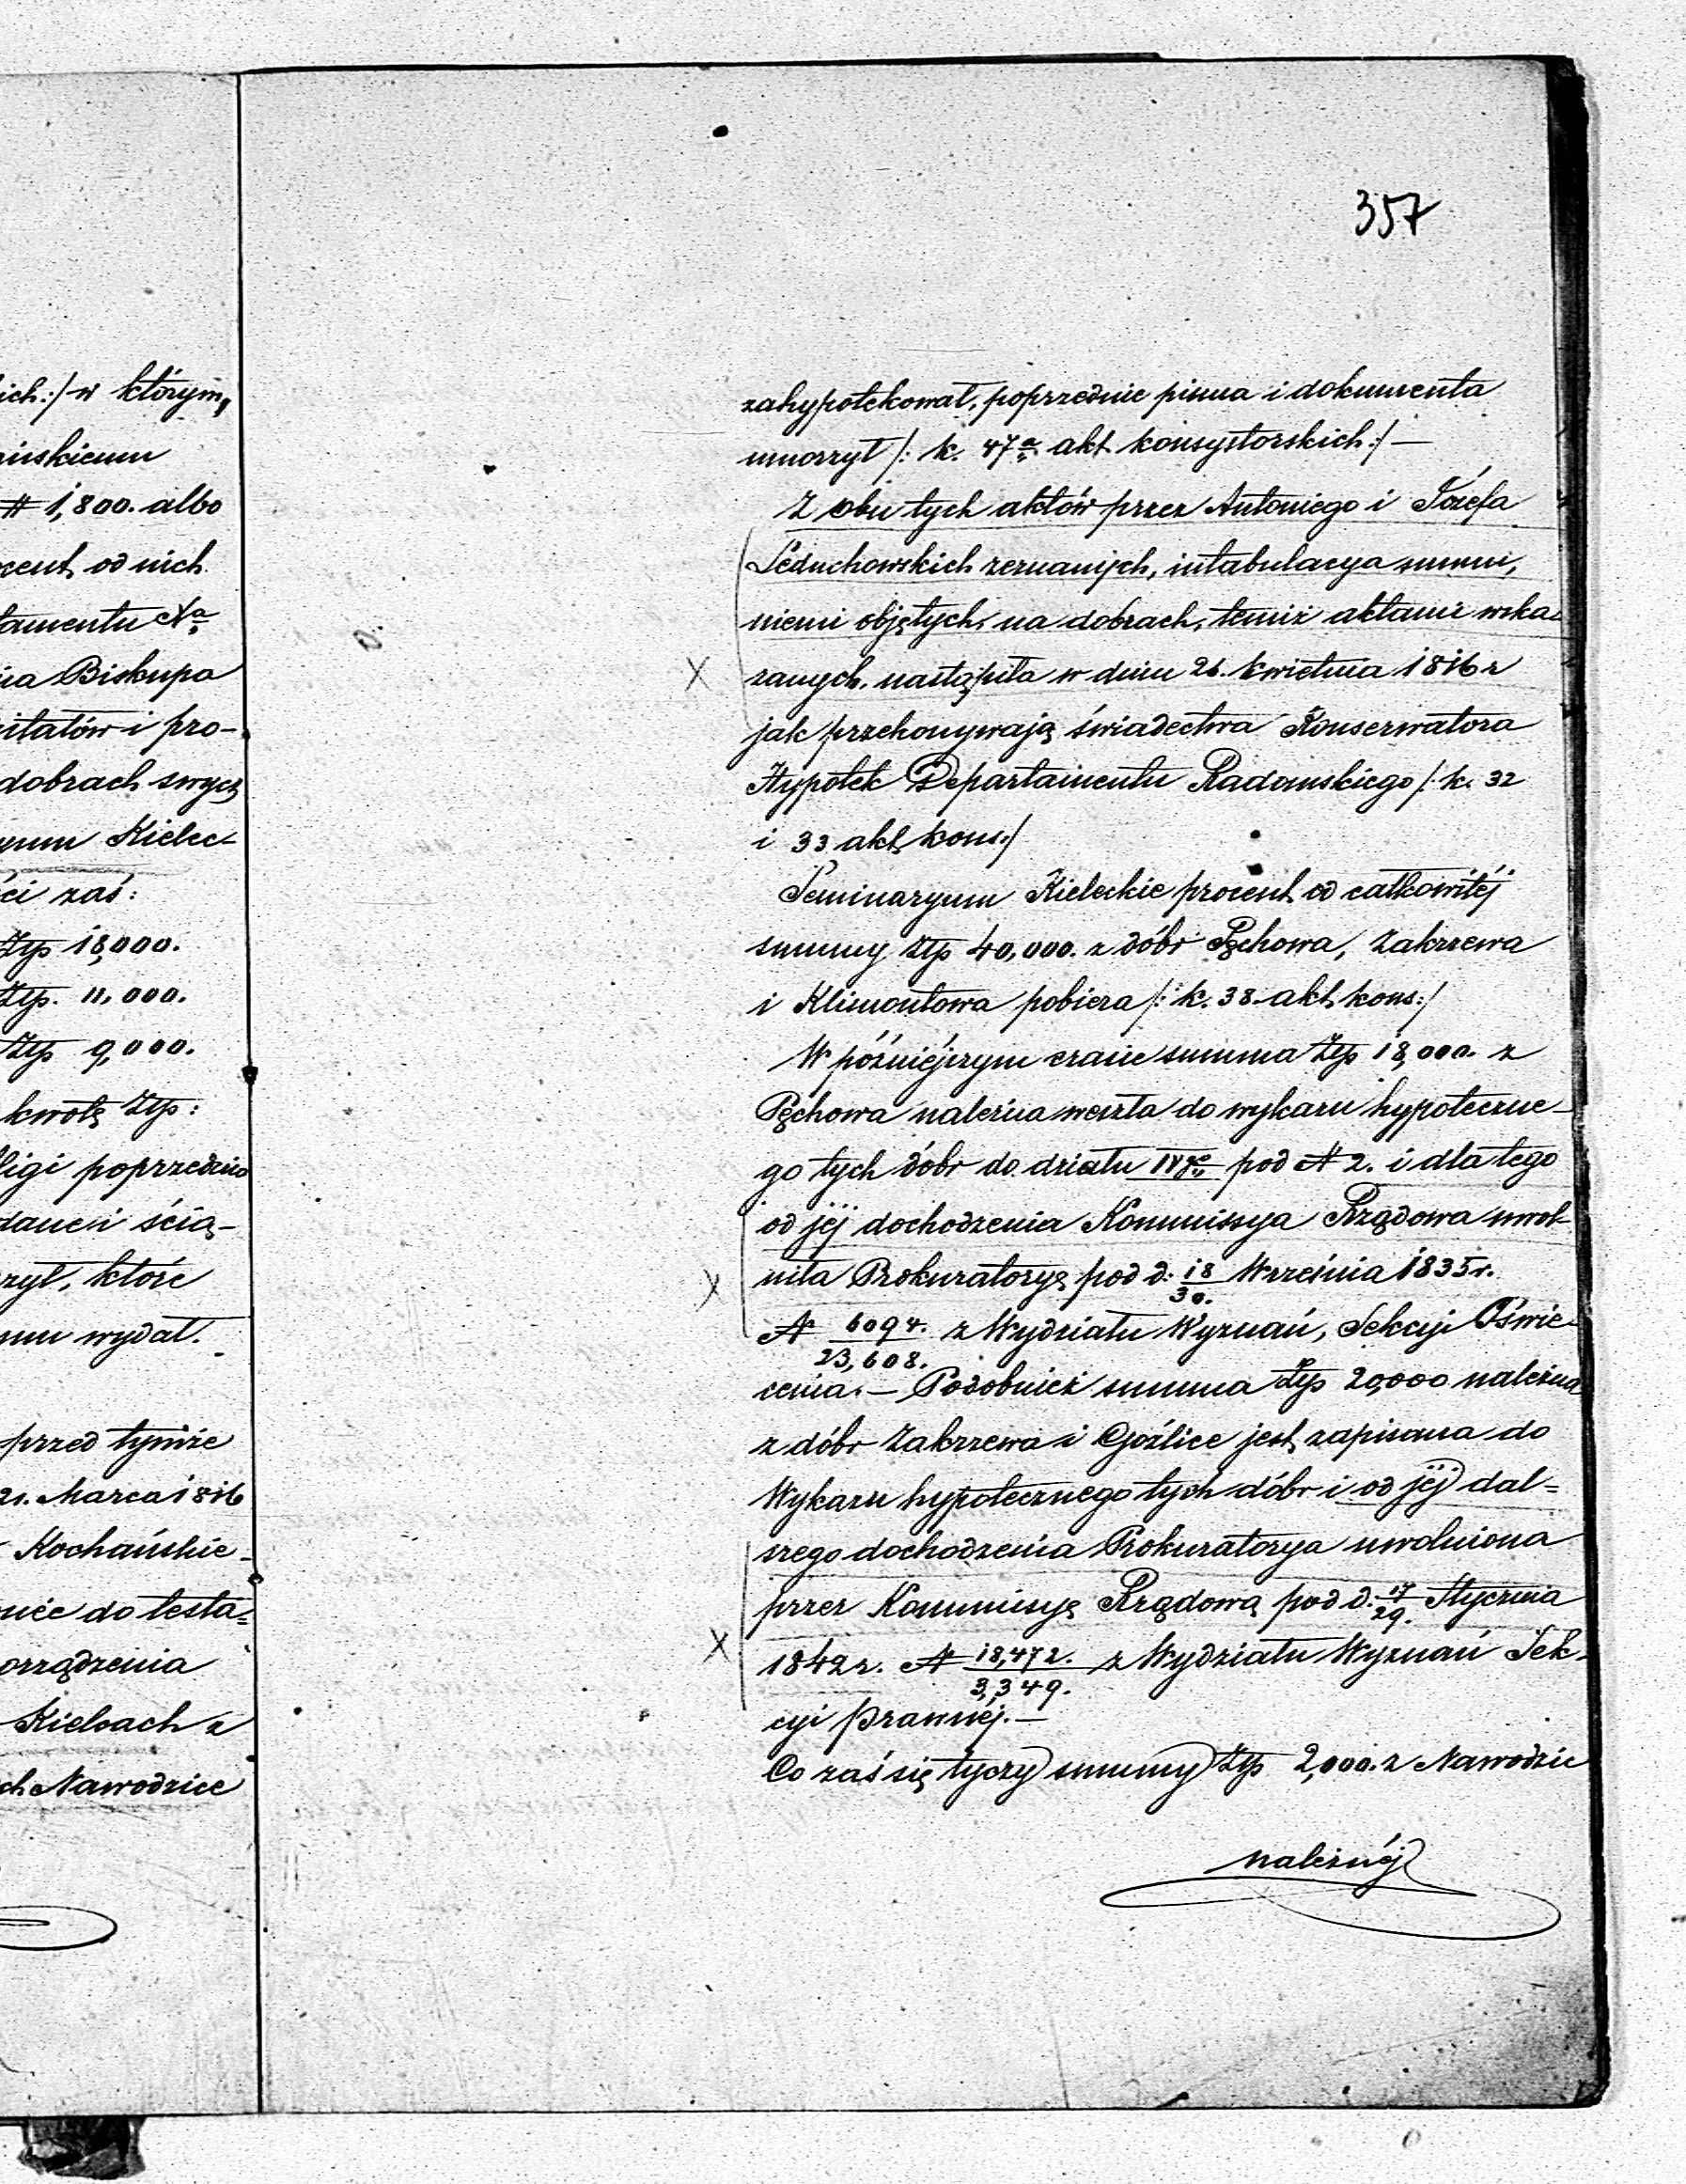 357
ich:/ w którym,
ńskiemu
# 1,800. albo
cent od nich
tamentu Na
ia Biskupa
pitałów i pro-
dobrach swych
yum Kielec-
ści zaś:
Złp 18,000.
Złp. 11,000.
Złp 9,000.
kwotę Złp:
ligi poprzednio
danei ścią-
rzył, które
mu wydał.
przed tymże
21. Marca 1816
Kochańskie-
nić do testa=
orządzenia
Kielcach z
ch Nawodzice
zahypotekował, poprzednie pisma i dokumenta
umorzył /: k. 47a akt konsystorskich:/ —
Z obu tych aktów przez Antoniego i Józefa
Leduchowskich zeznanych, intabulacya summ,
niemi objętych, na dobrach, temiż aktami wska-
zanych, nastąpiła w dniu 26. kwietnia 1816 r
jak przekonywają świadectwa Konserwatora
Hypotek Departamentu Radomskiego /: k. 32
i 33 akt kons:/
Seminaryum Kieleckie procent od całkowitéj
summy Złp 40,000. z dóbr Pęchowa, Zakrzewa
i Klimontowa pobiera /: k. 38. akt kons:/
W późniéjszym czasie summa Złp 18,000. z
Pęchowa należna weszła do wykazu hypoteczne-
go tych dóbr do działu IVgo pod N 2. i dla tego
od jéj dochodzenia Kommissya Rządowa uwol-
niła Prokuratoryę pod d: 18/30. Września 1835 r.
N 6094./23,608. z Wydziału Wyznań, Sekcyi Oświe-
cenia. — Podobnież summa Złp 20,000 należna
z dóbr Zakrzewa i Goźlice jest zapisana do
Wykazu hypotecznego tych dóbr i od jéj dal=
szego dochodzenia Prokuratorya uwolniona
przez Kommisyę Rządową pod d. 17/29. Stycznia
1842 r. N 18,472./3,349. z Wydziału Wyznań Sek-
cyi prawnéj. —
Co zaś się tyczy summy Złp 2,000. z Nawodzic
należnéj